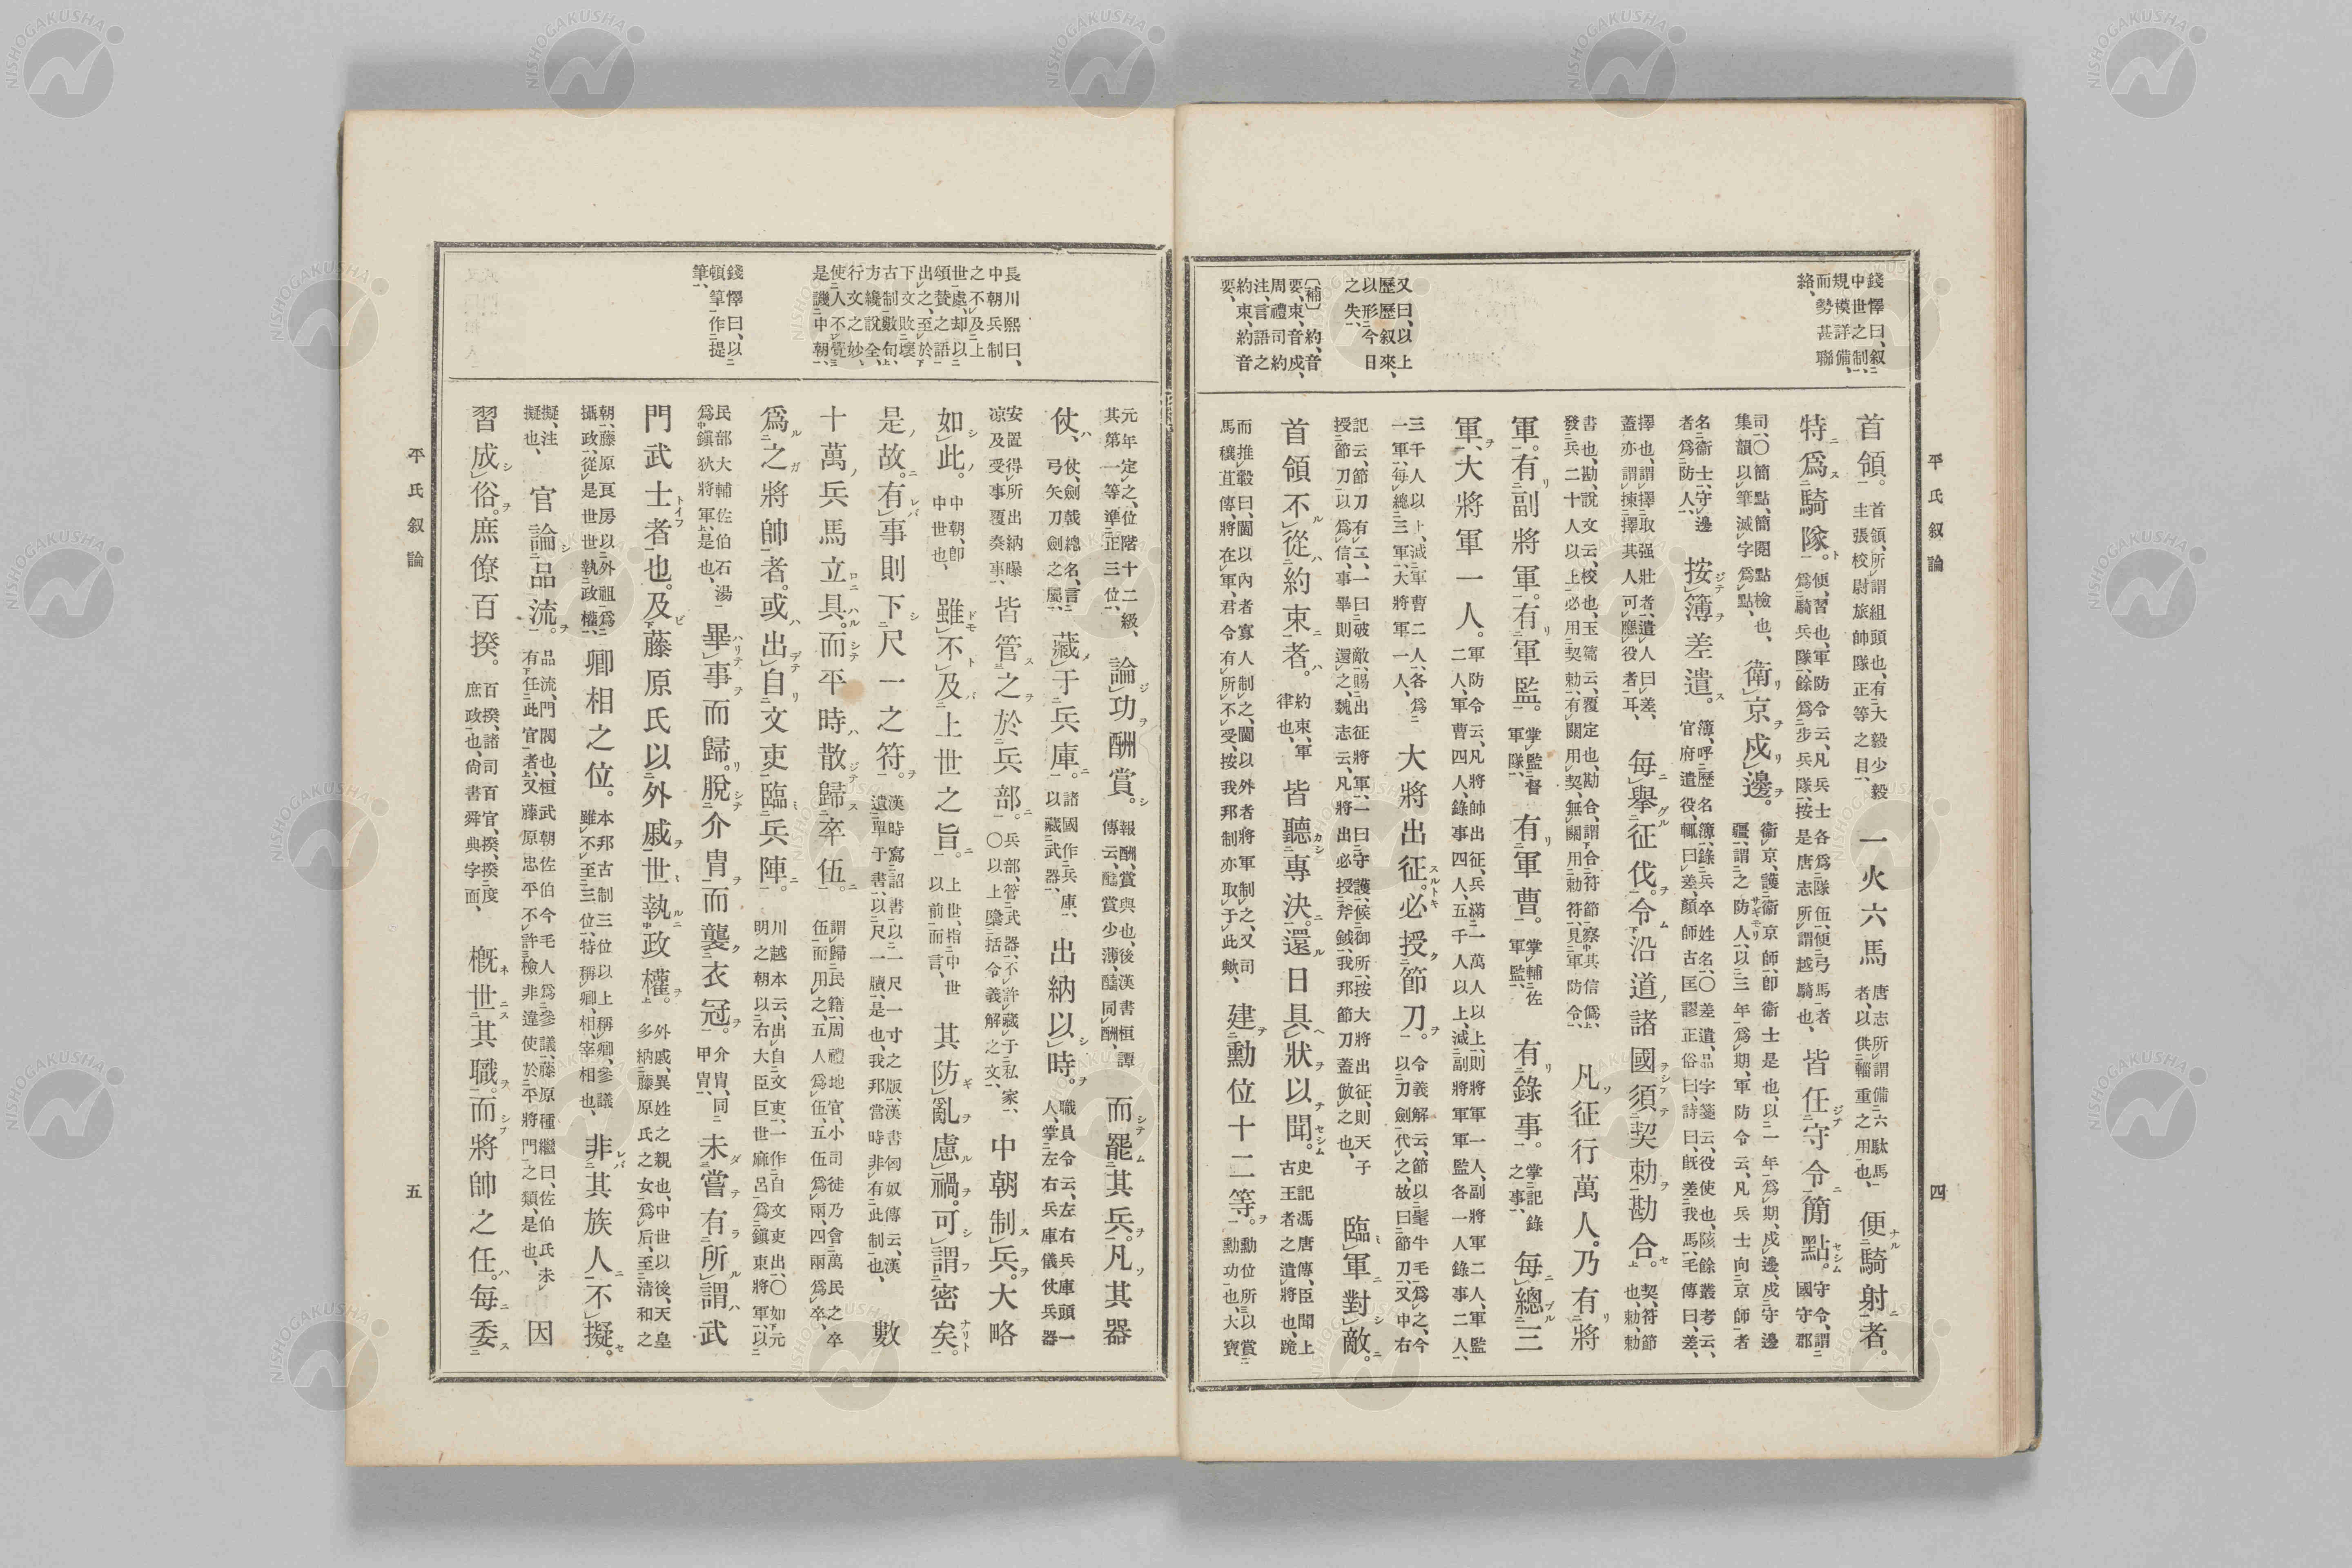 平氏叙論
四
錢懌曰、叙
中世之制、
規模詳備、
而勢甚聯
絡、
又曰、以上
歷歷叙來、
以形今日
之失、
〔補〕約、音
要、束、音戍、
周禮司約
注、言語之
約束、約音
要、
首領。首領、所謂組頭也、有大毅少毅主張校尉旅帥隊正等之目、一火六馬唐志所謂備六駄馬者、以供輜重之用也、便騎射者。
特爲騎隊。便、習也、軍防令云、凡兵士各爲隊伍、便弓馬者爲騎兵隊、餘爲步兵隊、按是唐志所謂越騎也、皆任守令簡點。守令、謂國守郡
司、〇簡點、簡閱點檢也、集韻以筆滅字爲點、衛京戍邊。衞京、護衞京師、卽衞士是也、以一年爲期、戍邊、戍守邊疆、謂之防人、以三年爲期、軍防令云、凡兵士向京師者
名衞士、守邊者爲防人、按簿差遣。簿、呼歷名簿、錄兵卒姓名、〇差遣、品字箋云、役使也、陔餘叢考云、官府遣役、輒曰差、顏師古匡謬正俗曰、詩曰、旣差我馬、毛傳曰、差、
擇也、謂擇取强壯者、遣人曰差、蓋亦謂揀擇其人可應役者耳、每擧征伐。令沿道諸國須契勅勘合。契、符節也、勅、勅
書也、勘、說文云、校也、玉篇云、覆定也、勘合、謂合符節察其信僞、發兵二十人以上、必用契勅、有關用契、無關用勅符、見軍防令、凡征行萬人。乃有將
軍。有副將軍。有軍監。掌監督軍隊、有軍曹。掌輔佐軍監、有錄事。掌記錄之事、每總三
軍、大將軍一人。軍防令云、凡將帥出征、兵滿一萬人以上、則將軍一人、副將軍二人、軍監二人、軍曹四人、錄事四人、五千人以上、減副將軍軍監各一人錄事二人、
三千人以上、減軍曹二人、各爲一軍、每總三軍、大將軍一人、大將出征。必授節刀。令義解云、節以髦牛毛爲之、今以刀劍代之、故曰節刀、又中右
記云、節刀有二、一曰破敵、賜出征將軍、一曰守護、候御所、按大將出征、則天子授節刀以爲信、事畢則還之、魏志云、凡將出必授斧鉞、我邦節刀蓋倣之也、臨軍對敵。
首領不從約束者。約束、軍律也、皆聽專決。還日具狀以聞。史記馮唐傳、臣聞上古王者之遣將也、跪
而推轂曰、閫以內者寡人制之、閫以外者將軍制之、又司馬穰苴傳、將在軍、君令有所不受、按我邦制亦取于此歟、建勳位十二等。勳位所以賞勳功也、大寶
長川熙曰、
中朝兵制
之不及上
世處、却以
頌贊之語
出之、至於
下文敗壞
古制數句、
方纔說全、
行文之妙、
使人不覺
是譏中朝、
錢懌曰、以
頓筆作提
筆、
元年定之、位階十二級、其第一等、準正三位、論功酬賞。報酬、賞與也、後漢書桓譚傳云、醻賞少薄、醻同酬、而罷其兵。凡其器
仗、仗、劍戟總名、言弓矢刀劍之屬、藏于兵庫。諸國作兵庫、以藏武器、出納以時。職員令云、左右兵庫頭一人、掌左右兵庫儀仗兵器
安置得所出納曝涼及受事覆奏事、皆管之於兵部。兵部、管武器、不許藏于私家、〇以上檃括令義解之文、中朝制兵。大略
如此。中朝、卽中世也、雖不及上世之旨。上世、指中世以前而言、其防亂慮禍。可謂密矣。
是故。有事則下尺一之符。漢時寫詔書以一尺一寸之版、漢書匈奴傳云、漢遣單于書、以尺一牘、是也、我邦當時非有此制也、數
十萬兵馬立具。而平時散歸卒伍。謂歸民籍、周禮地官、小司徒乃會萬民之卒伍而用之、五人爲伍、五伍爲兩、四兩爲卒、
爲之將帥者。或出自文吏臨兵陣。川越本云、出自文吏、一作自文吏出、〇如元明之朝以右大臣巨世麻呂爲鎭東將軍、以
民部大輔佐伯石湯爲鎭狄將軍是也、畢事而歸。脫介冑而襲衣冠。介冑、同甲冑、未嘗有所謂武
門武士者也。及藤原氏以外戚世執政權。外戚、異姓之親也、中世以後、天皇多納藤原氏之女爲后、至清和之
朝、藤原良房以外祖爲攝政、從是世世執政權、卿相之位。本邦古制三位以上稱卿、參議雖不至三位、特稱卿、相、宰相也、非其族人不擬。
擬、注擬也、官論品流。品流、門閥也、桓武朝佐伯今毛人爲參議、藤原種繼曰、佐伯氏未有任此官者、又藤原忠平不許檢非違使於平將門之類、是也、因
習成俗。庶僚百揆。百揆、諸司百官、揆、揆度庶政也、尙書舜典字面、槪世其職。而將帥之任。每委
平氏叙論
五